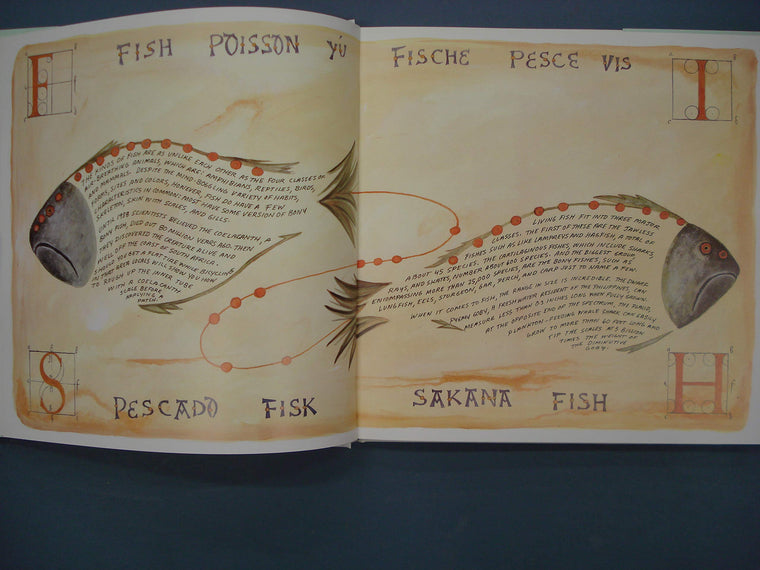 F
FISH POISSON YÚ
THE KINDS OF FISH ARE AS UNLIKE EACH OTHER AS THE FOUR CLASSES OF
AIR-BREATHING ANIMALS, WHICH ARE: AMPHIBIANS, REPTILES, BIRDS,
AND MAMMALS. DESPITE THE MIND-BOGGLING VARIETY OF HABITS,
FORMS, SIZES AND COLORS, HOWEVER, FISH DO HAVE A FEW
CHARACTERISTICS IN COMMON: MOST HAVE SOME VERSION OF BONY
SKELETON, SKIN WITH SCALES, AND GILLS.
UNTIL 1938 SCIENTISTS BELIEVED THE COELACANTH, A
BONY FISH, DIED OUT 80 MILLION YEARS AGO. THEN
THEY DISCOVERED THE CREATURE ALIVE AND
WELL OFF THE COAST OF SOUTH AFRICA.
SHOULD YOU GET A FLAT TIRE WHILE BICYCLING
IN THE LOCALS WILL SHOW YOU HOW
TO ROUGH UP THE INNER TUBE
WITH A COELACANTH
SCALE BEFORE
APPLYING A
PATCH.
S
PESCADO FISK
FISCHE PESCE VIS
I
LIVING FISH FIT INTO THREE MAJOR
CLASSES. THE FIRST OF THESE ARE THE JAWLESS
FISHES SUCH AS LIKE LAMPREYS AND HAGFISH, A TOTAL OF
ABOUT 45 SPECIES. THE CARTILAGINOUS FISHES, WHICH INCLUDE SHARKS,
RAYS, AND SKATES, NUMBER ABOUT 600 SPECIES. AND THE BIGGEST GROUP,
ENCOMPASSING MORE THAN 25,000 SPECIES, ARE THE BONY FISHES, SUCH AS
LUNGFISH, EELS, STURGEON, GAR, PERCH, AND CARP JUST TO NAME A FEW.
WHEN IT COMES TO FISH, THE RANGE IN SIZE IS INCREDIBLE. THE DWARF
PYGMY GOBY, A FRESHWATER RESIDENT OF THE PHILIPPINES, CAN
MEASURE LESS THAN 0.3 INCHES LONG WHEN FULLY GROWN.
AT THE OPPOSITE END OF THE SPECTRUM, THE PLACID,
PLANKTON-FEEDING WHALE SHARK CAN EASILY
GROW TO MORE THAN 60 FEET LONG AND
TIP THE SCALES AT 3 BILLION
TIMES THE WEIGHT OF
THE DIMINUTIVE
GOBY.
SAKANA FISH
H